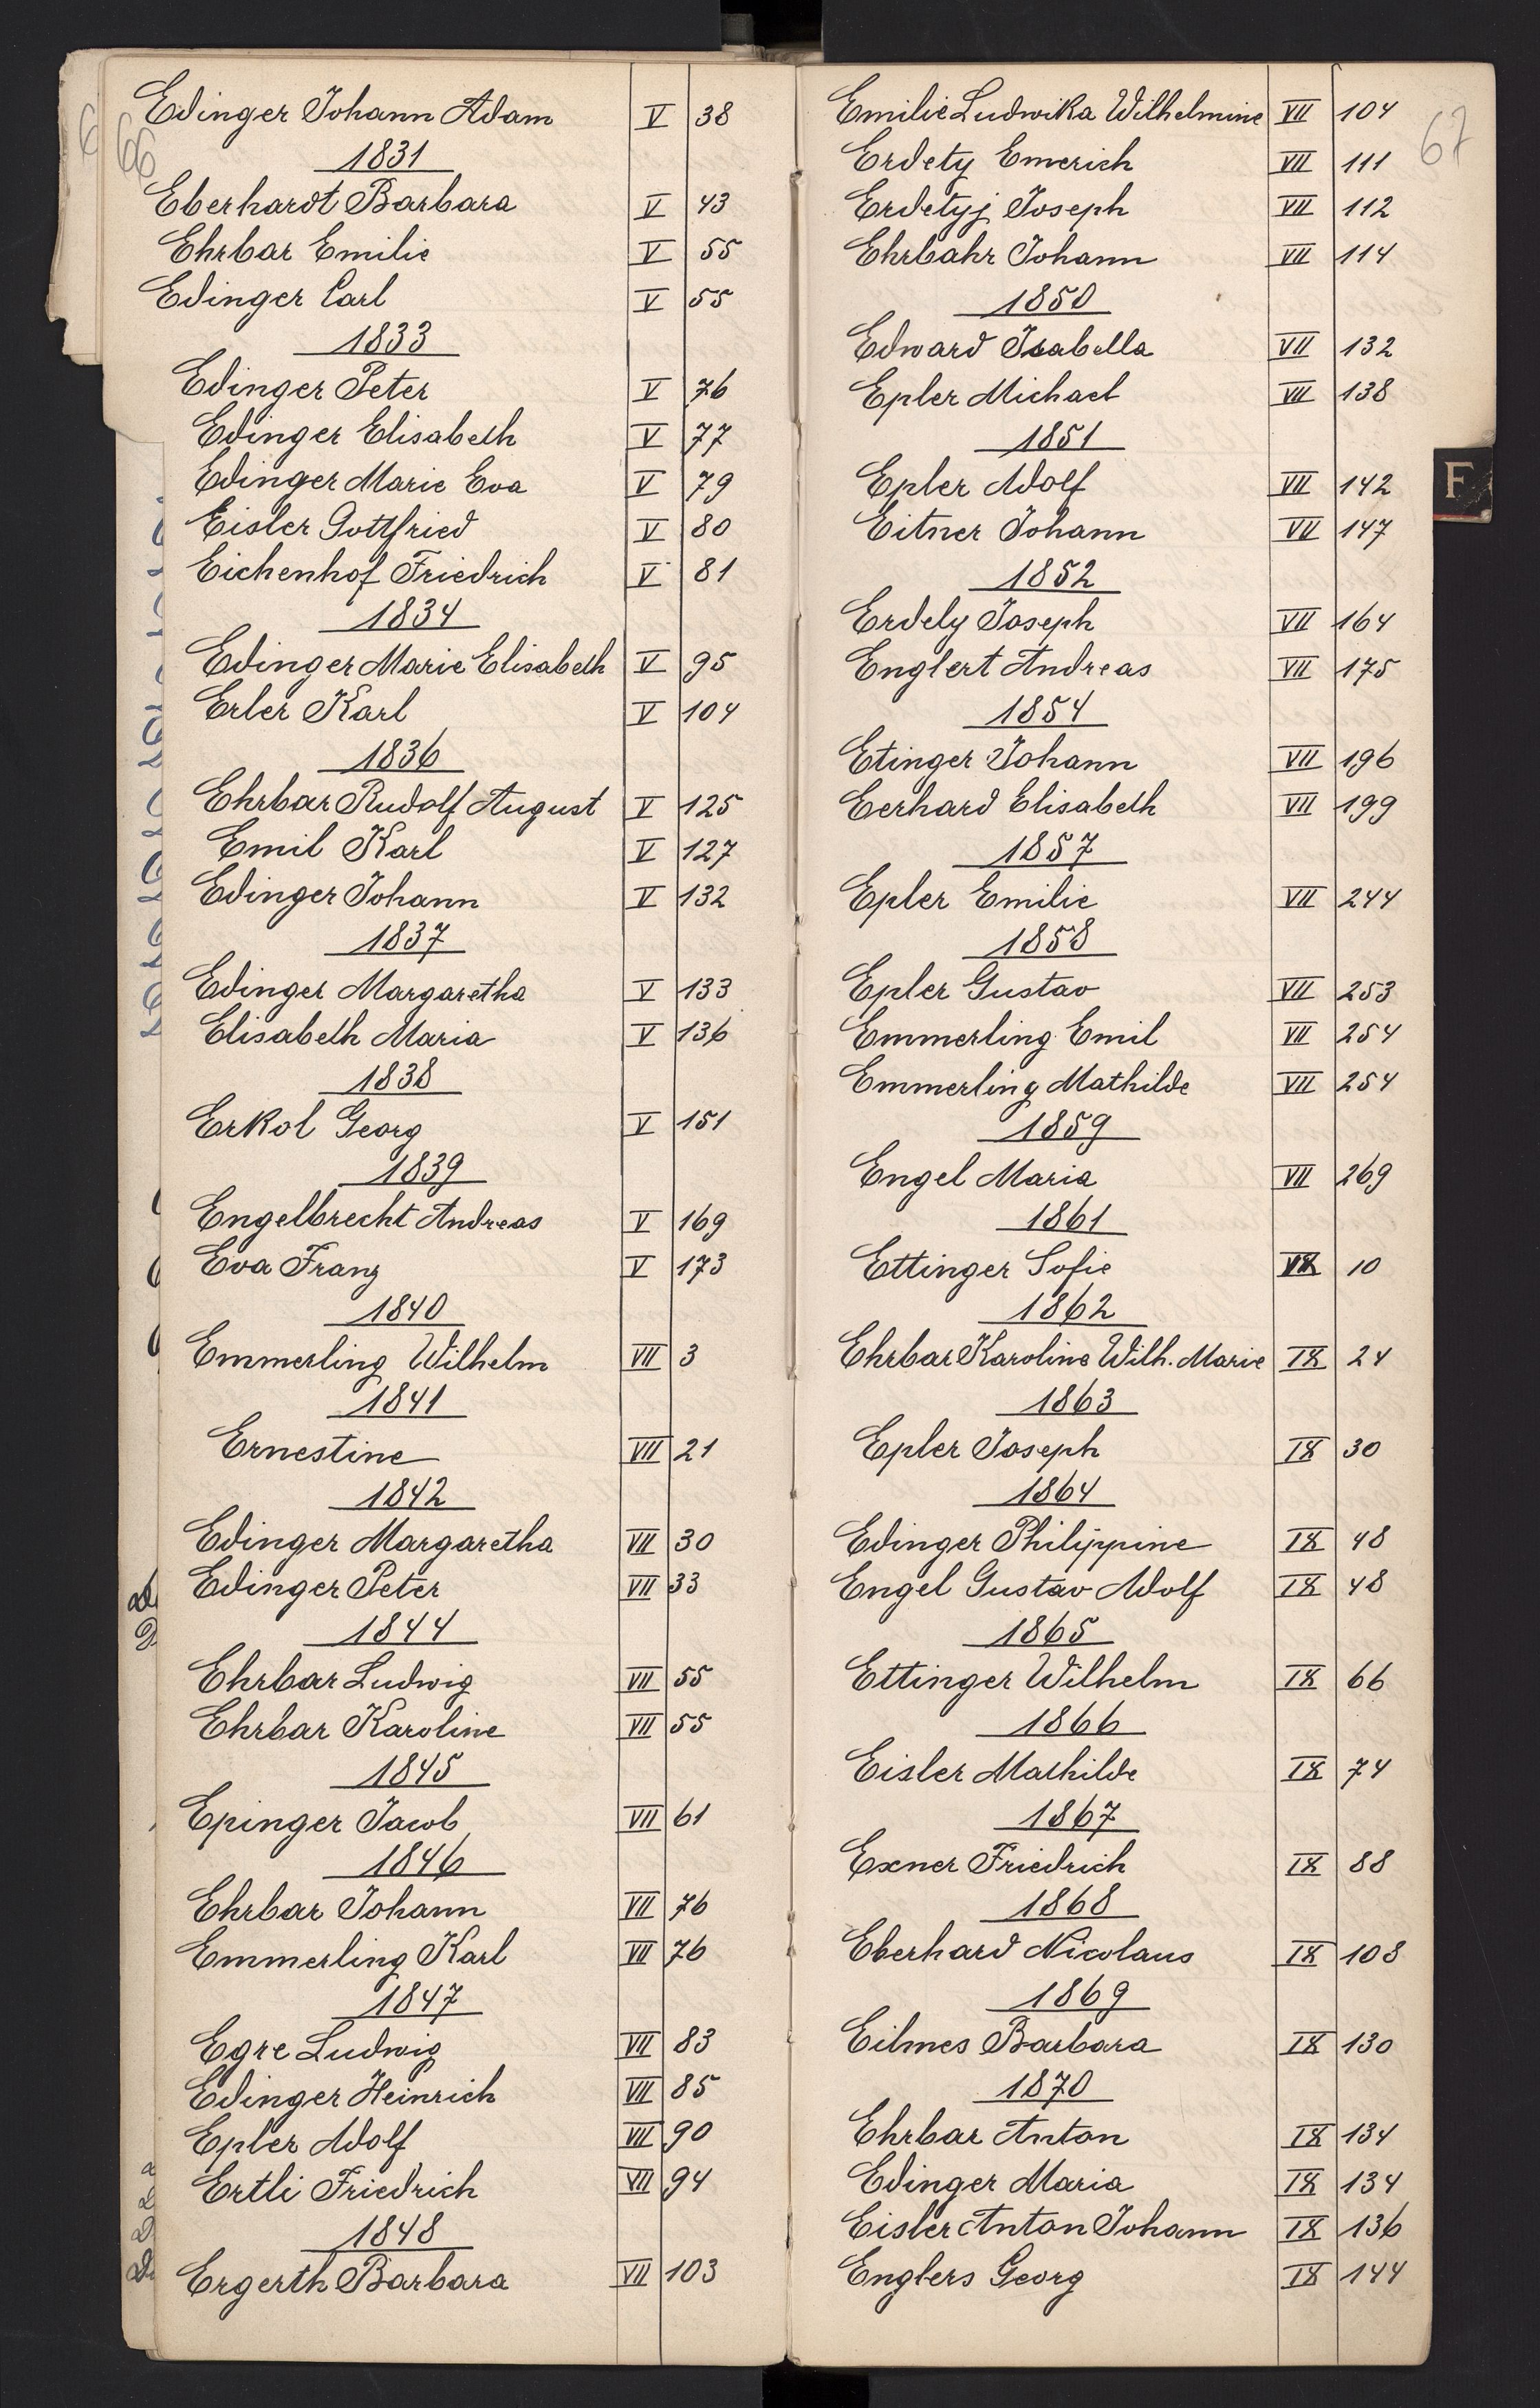 66
Edinger Johann Adam V 38
1831
Eberhardt Barbara V 43
Ehrbar Emilie V 55
Edinger Carl V 55
1833
Edinger Peter V 76
Edinger Elisabeth V 77
Edinger Marie Eva V 79
Eisler Gottfried V 80
Eichenhof Friedrich V 81
1834
Edinger Marie Elisabeth V 95
Erler Karl V 104
1836
Ehrbar Rudolf August V 125
Emil Karl V 127
Edinger Johann V 132
1837
Edinger Margaretha V 133
Elisabeth Maria V 136
1838
Erkol Georg V 151
1839
Engelbrecht Andreas V 169
Eva Franz V 173
1840
Emmerling Wilhelm VII 3
1841
Ernestine VII 21
1842
Edinger Margaretha VII 30
Edinger Peter VII 33
1844
Ehrbar Ludwig VII 55
Ehrbar Karoline VII 55
1845
Epinger Jacob VII 61
1846
Ehrbar Johann VII 76
Emmerling Karl VII 76
1847
Egre Ludwig VII 83
Edinger Heinrich VII 85
Epler Adolf VII 90
Ertli Friedrich VII 94
1848
Ergerth Barbara VII 103
67
Emilie Ludwika Wilhelmine VII 104
Erdety Emerich VII 111
Erdetyj Joseph VII 112
Ehrbahr Johann VII 114
1850
Edward Isabella VII 132
Epler Michael VII 138
1851
Epler Adolf VII 142
Eitner Johann VII 147
1852
Erdely Joseph VII 164
Englert Andreas VII 175
1854
Etinger Johann VII 196
Eerhard Elisabeth VII 199
1857
Epler Emilie VII 244
1858
Epler Gustav VII 253
Emmerling Emil VII 254
Emmerling Mathilde VII 254
1859
Engel Maria VII 269
1861
Ettinger Sofie 10
1862
Ehrbar Karoline Wilh. Marie IX 24
1863
Epler Joseph IX 30
1864
Edinger Philippine IX 48
Engel Gustav Adolf IX 48
1865
Ettinger Wilhelm IX 66
1866
Eisler Mathilde IX 74
1867
Exner Friedrich IX 88
1868
Eberhard Nicolaus IX 108
1869
Eilmes Barbara IX 130
1870
Ehrbar Anton IX 134
Edinger Maria IX 134
Eisler Anton Johann IX 136
Englers Georg IX 144
F